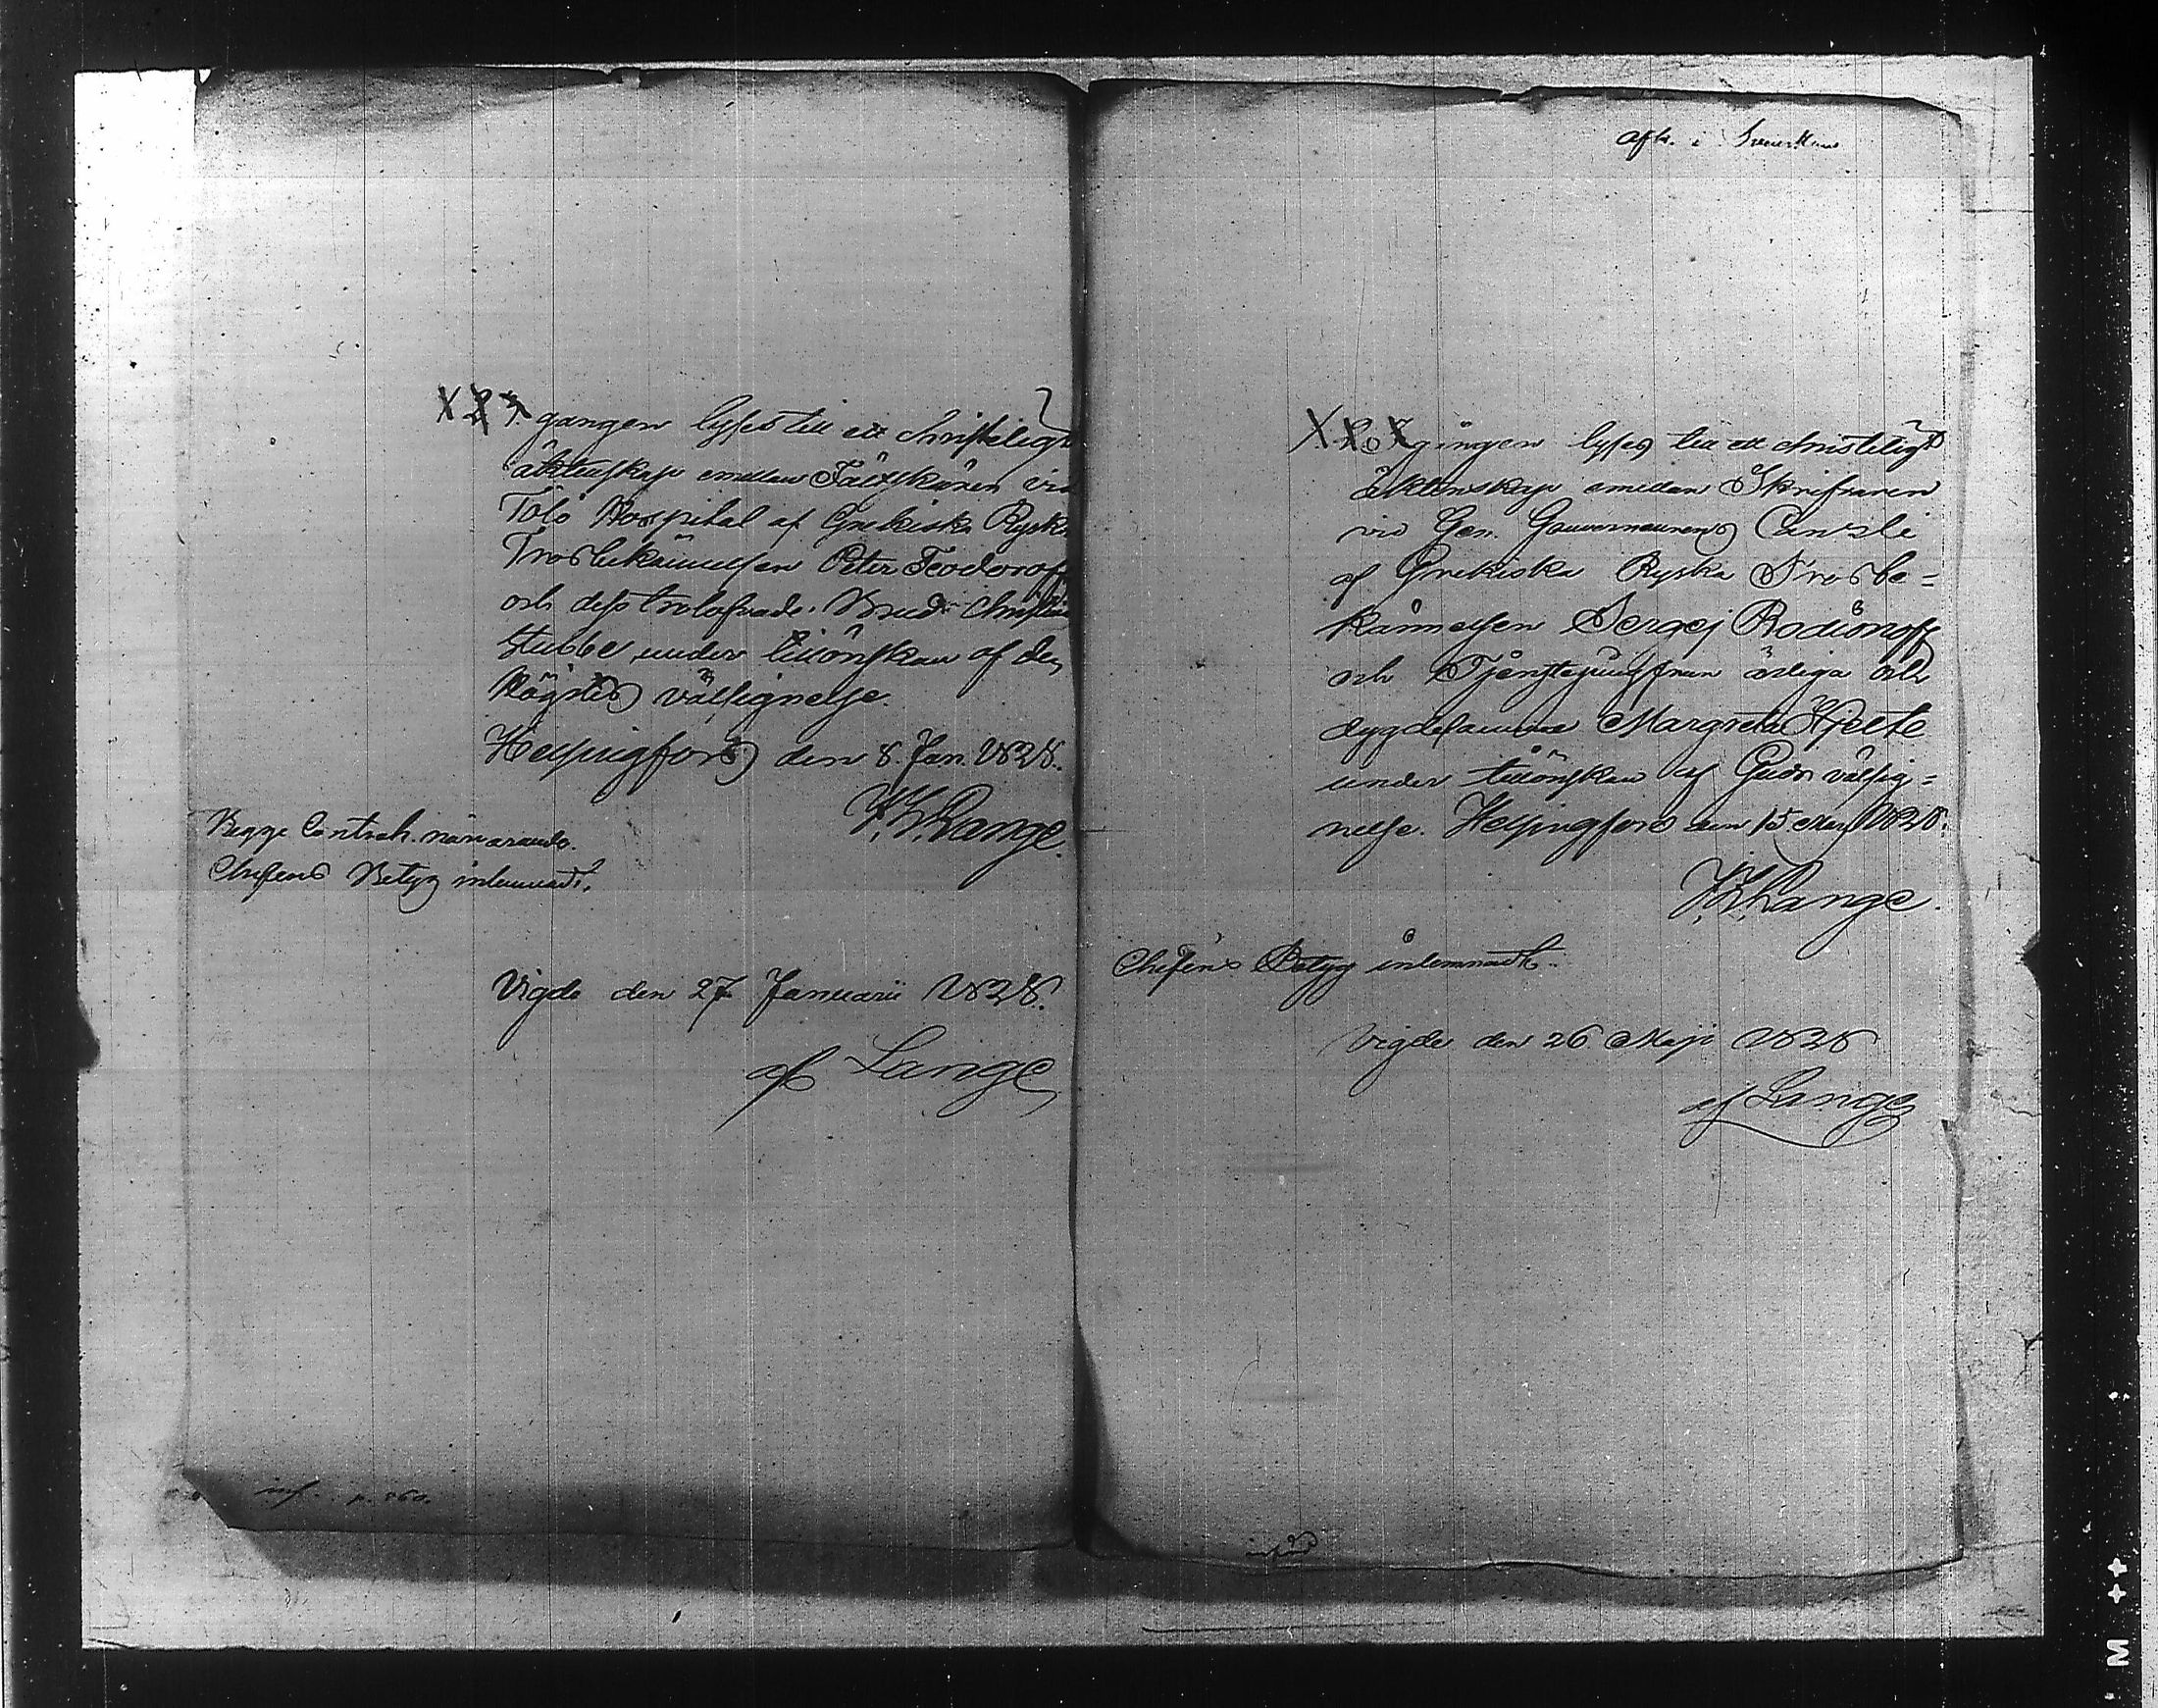 X X X gången lyses till ett christeligt
äktenskap emellan Fältskären vid
Tölö Hospital af Grekiska Ryska
Trosbekännelsen Peter Feodoroff
och dess trolofvade Brud Christina
Stubbe, under tillönskan af den
Högstes välsignelse.
Helsingfors den 8. Jan. 1828.
Lange.
Begge Contrah. närvarande.
Chefens Betyg inlemnadt.
Vigde den 27 Januarii 1828.
af Lange
inf. p. 260.
afk. i
X X X gången lyses till ett christeligt
äktenskap emellan Skrifvaren
vid Gen. Gouverneurens Cansli
af Grekiska Ryska Trosbe=
kännelsen Sergej Rodionoff
och Tjenstejungfrun ärliga och
dygdesamma Margreta
under tillönskan af Guds välsig=
nelse. Helsingfors den 15 Maj 1828.
Lange.
Chefens Betyg inlemnadt.
Vigde den 26. Maji 1828
af Lange
införd
M